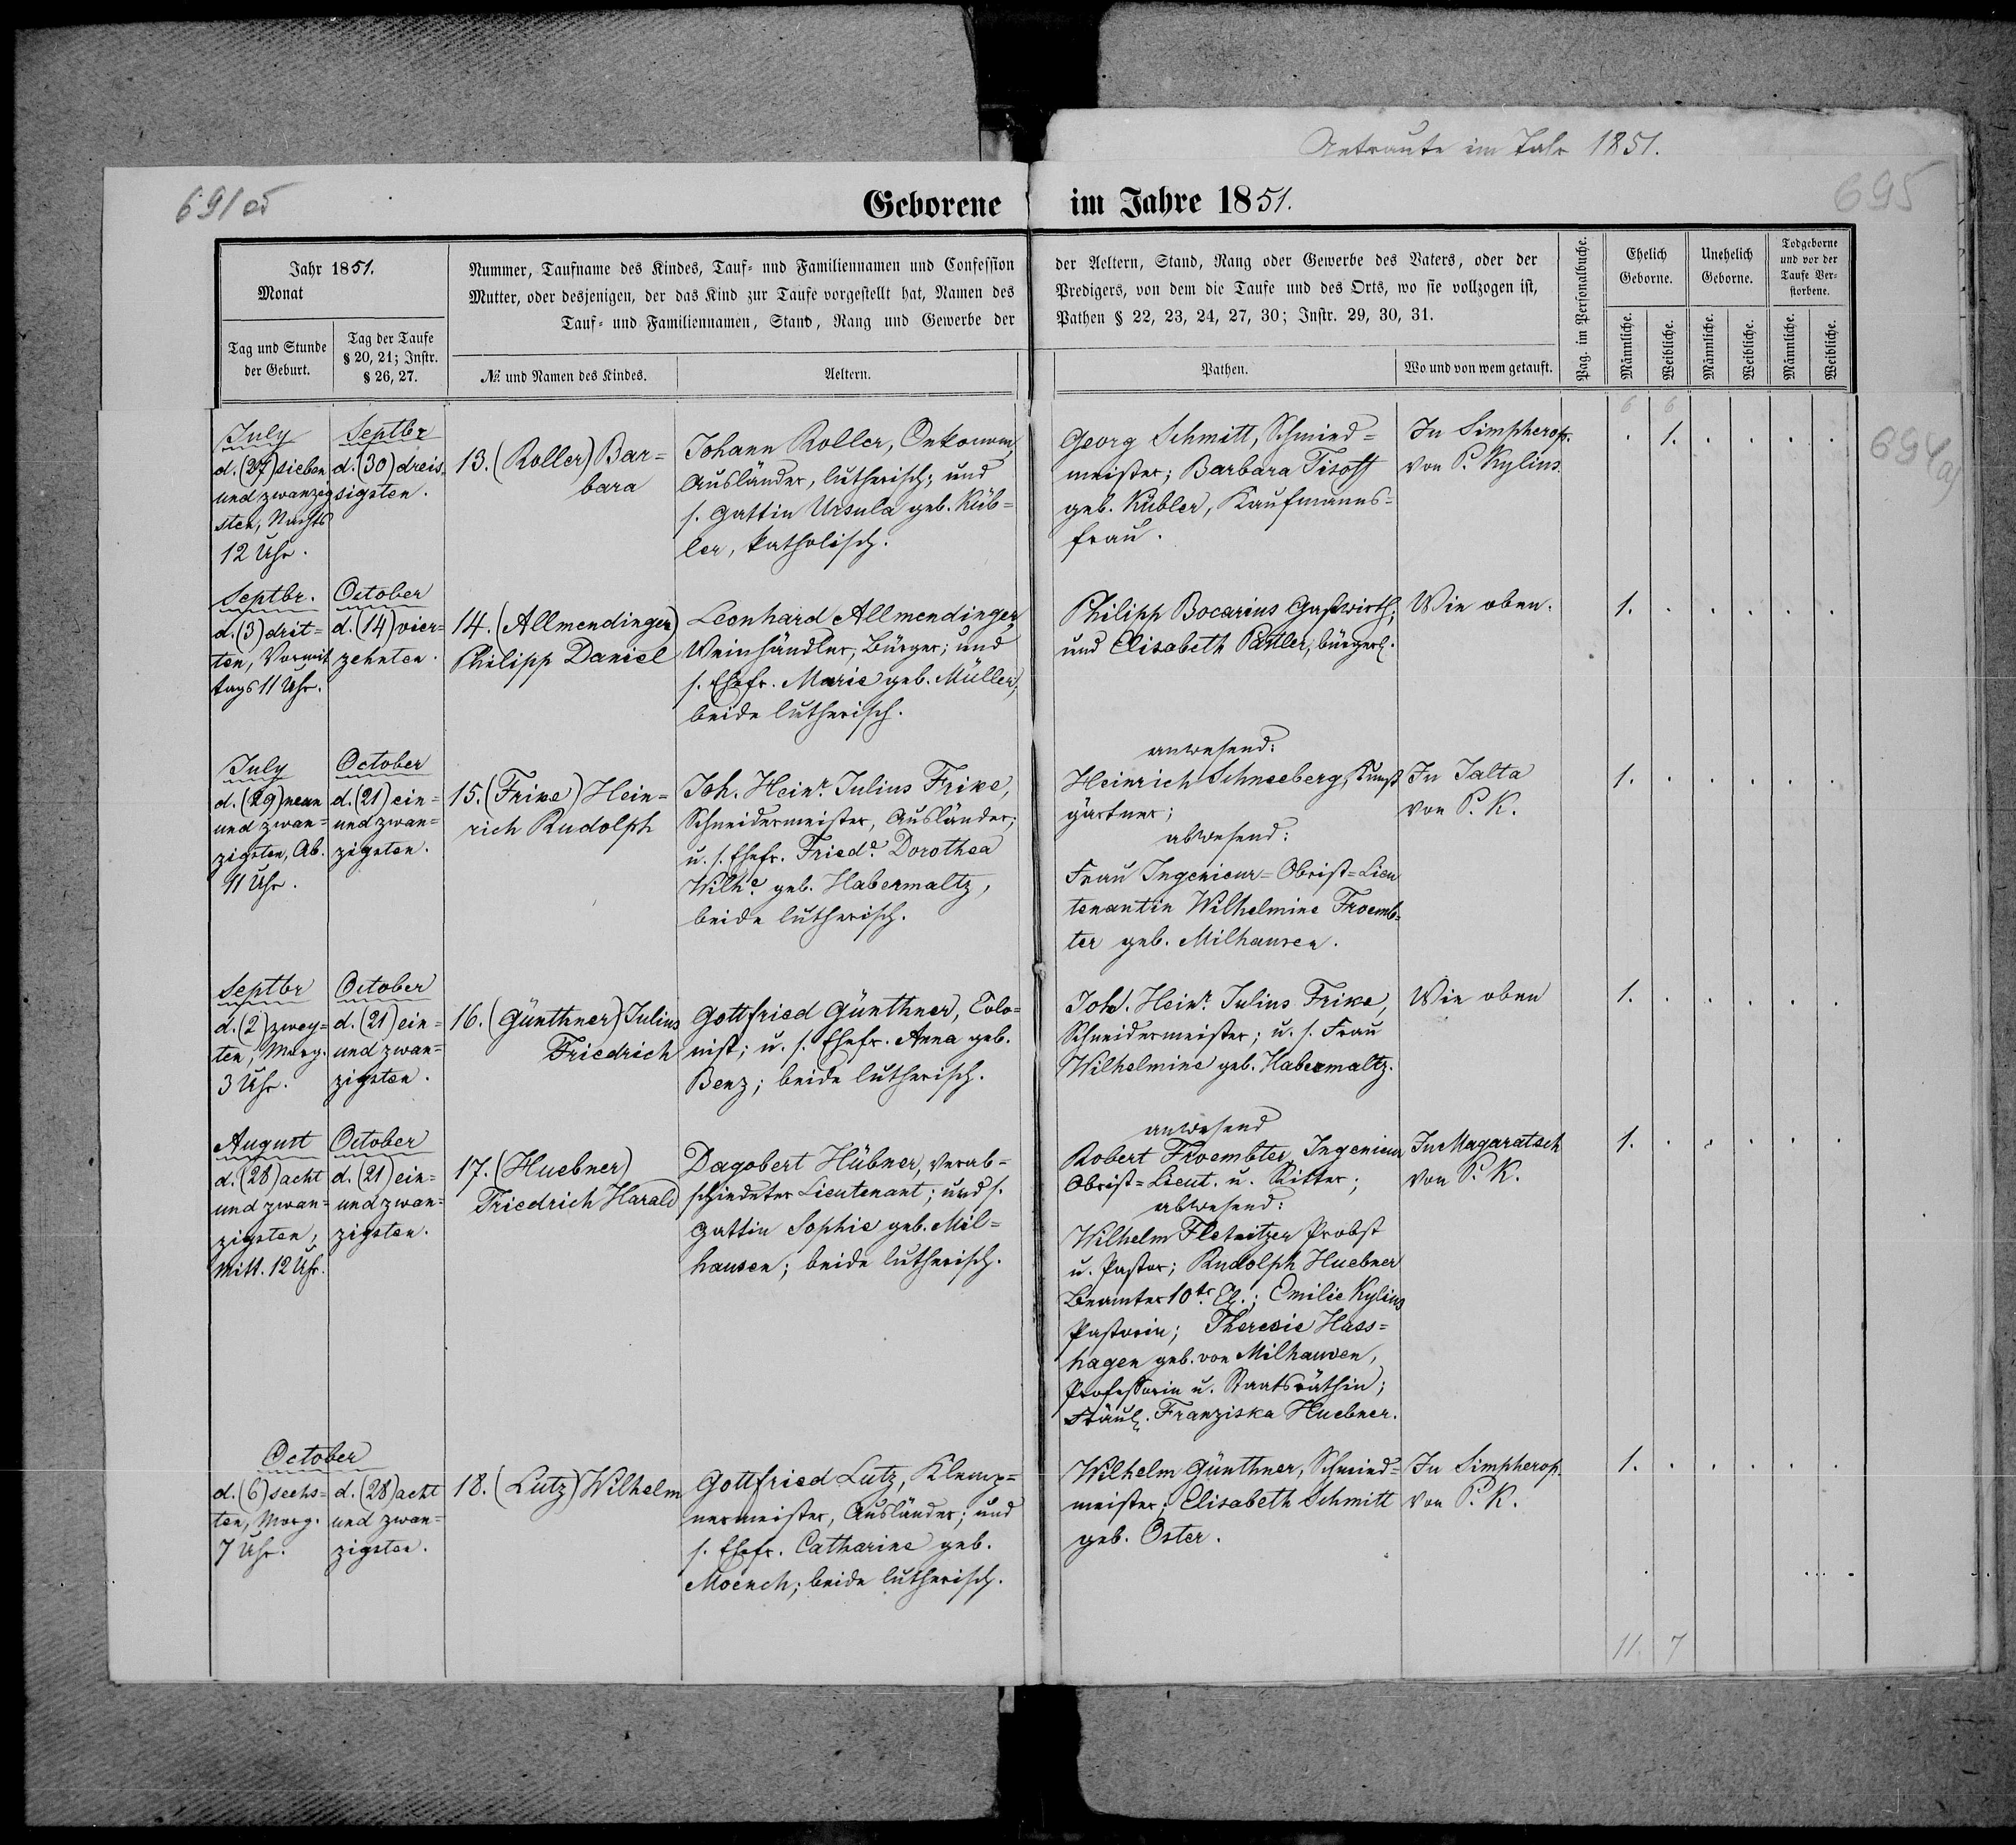 Getraute im Jahr 1851.
695
Geborene im Jahre 1851.
694 a)
Jahr 1851.
Monat
Tag und Stunde der Geburt.
Tag der Taufe § 20, 21; Instr. § 26, 27.
Nummer, Taufname des Kindes, Tauf- und Familiennamen und Confession der Aeltern, Stand, Rang oder Gewerbe des Vaters, oder der
Mutter, oder desjenigen, der das Kind zur Taufe vorgestellt hat, Namen des Predigers, von dem die Taufe und des Orts, wo sie vollzogen ist,
Tauf- und Familiennamen, Stand, Rang und Gewerbe der Pathen § 22, 23, 24, 27, 30; Instr. 29, 30, 31.
№ und Namen des Kindes.
Aeltern.
Pathen.
Wo und von wem getauft.
Pag. im Personalbuche.
Ehelich Geborne.
Unehelich Geborne.
Todgeborne und vor der Taufe Verstorbene.
Männliche.
Weibliche.
Männliche.
Weibliche.
Männliche.
Weibliche.
6 6
July
d. (27) sieben
und zwanzig
sten, Nachts
12 Uhr.
Septbr
d. (30) dreis
sigsten.
13. (Roller) Bar=
bara
Johann Roller, Oekonom,
Ausländer, lutherisch; und
s. Gattin Ursula geb. Küb=
ler, katholisch.
Georg Schmitt, Schmied=
meister; Barbara Tisoff
geb. Kübler, Kaufmanns=
frau.
In Simpherop.
von P. Kylius.
. 1. . . . .
Septbr.
d. (3) drit=
ten, Vormit
tags 11 Uhr.
October
d. (14) vier=
zehnten.
14. (Allmendinger)
Philipp Daniel
Leonhard Allmendinger,
Weinhändler, Bürger; und
s. Ehefr. Marie geb. Müller,
beide lutherisch.
Philipp Bocarius Gastwirth;
und Elisabeth, bürgerl.
Wie oben.
1. . . . . .
July
d. (29) neun
und zwan=
zigsten, Ab.
11 Uhr.
October
d. (21) ein=
und zwan=
zigsten.
15. (Frike) Hein=
rich Rudolph
Joh. Heinr. Julius Frike,
Schneidermeister, Ausländer;
u. s. Ehefr. Friede. Dorothea
Wilhe. geb. Habermaltz,
beide lutherisch.
anwesend:
Heinrich Schneeberg, Kunst
gärtner;
abwesend:
Frau Ingenieur=Obrist=Lieu
tenantin Wilhelmine Froemb=
ter geb. Milhausen.
In Jalta
von P. K.
1. . . . . .
Septbr
d. (2) zwey=
ten, Morg.
3 Uhr.
October
d. (21) ein=
und zwan=
zigsten.
16. (Günthner) Julius
Friedrich
Gottfried Günthner, Colo=
nist; u. s. Ehefr. Anna geb.
Benz; beide lutherisch.
Joh. Heinr. Julius Frike,
Schneidermeister; u. s. Frau
Wilhelmine geb. Habermaltz.
Wie oben
1. . . . . .
August
d. (28) acht
und zwan=
zigsten,
Mitt. 12 Uhr.
October
d. (21) ein=
und zwan=
zigsten.
17. (Huebner)
Friedrich Harald
Dagobert Hübner, verab=
schiedeter Lieutenant; und s.
Gattin Sophie geb. Mil=
hausen; beide lutherisch.
anwesend
Robert Froembter, Ingenieur
Obrist=Lieut. u. Ritter;
abwesend:
Wilhelm Fletnitzer Probst
u. Pastor; Rudolph Huebner
Beamter 10ter Cl.; Emilie Kylius
Pastorin; Theresie Hass=
hagen geb. von Milhausen,
Professorin u. Staatsräthin;
Fräul. Franziska Huebner.
In Magaratsch
von P. K.
1. . . . . .
October
d. (6) sechs=
ten, Morg.
7 Uhr.
d. (28) acht
und zwan=
zigsten.
18. (Lutz) Wilhelm
Gottfried Lutz, Klemp=
nermeister, Ausländer; und
s. Ehefr. Catharine geb.
Moench; beide lutherisch.
Wilhelm Günthner, Schmied=
meister; Elisabeth Schmitt
geb. Oster.
In Simpherop.
von P. K.
1. . . . . .
11. 7